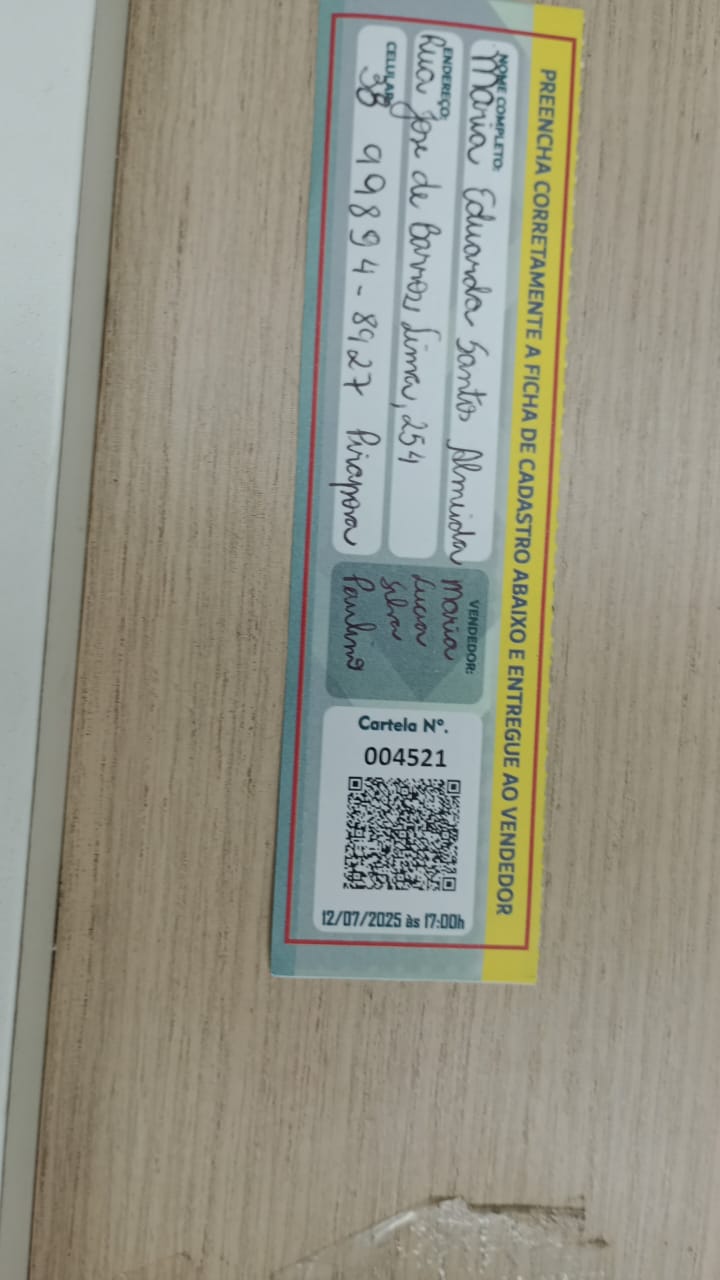 PREENCHA CORRETAMENTE A FICHA DE CADASTRO ABAIXO E ENTREGUE AO VENDEDOR
NOME COMPLETO:
Maria Eduarda Santos Almeida
ENDEREÇO:
Rua Jose de Barros Lima, 254
CELULAR:
38 99894-8927 Pirapora
VENDEDOR:
Maria
Lucia
Silva
Paulino
Cartela Nº.
004521
12/07/2025 às 17:00h